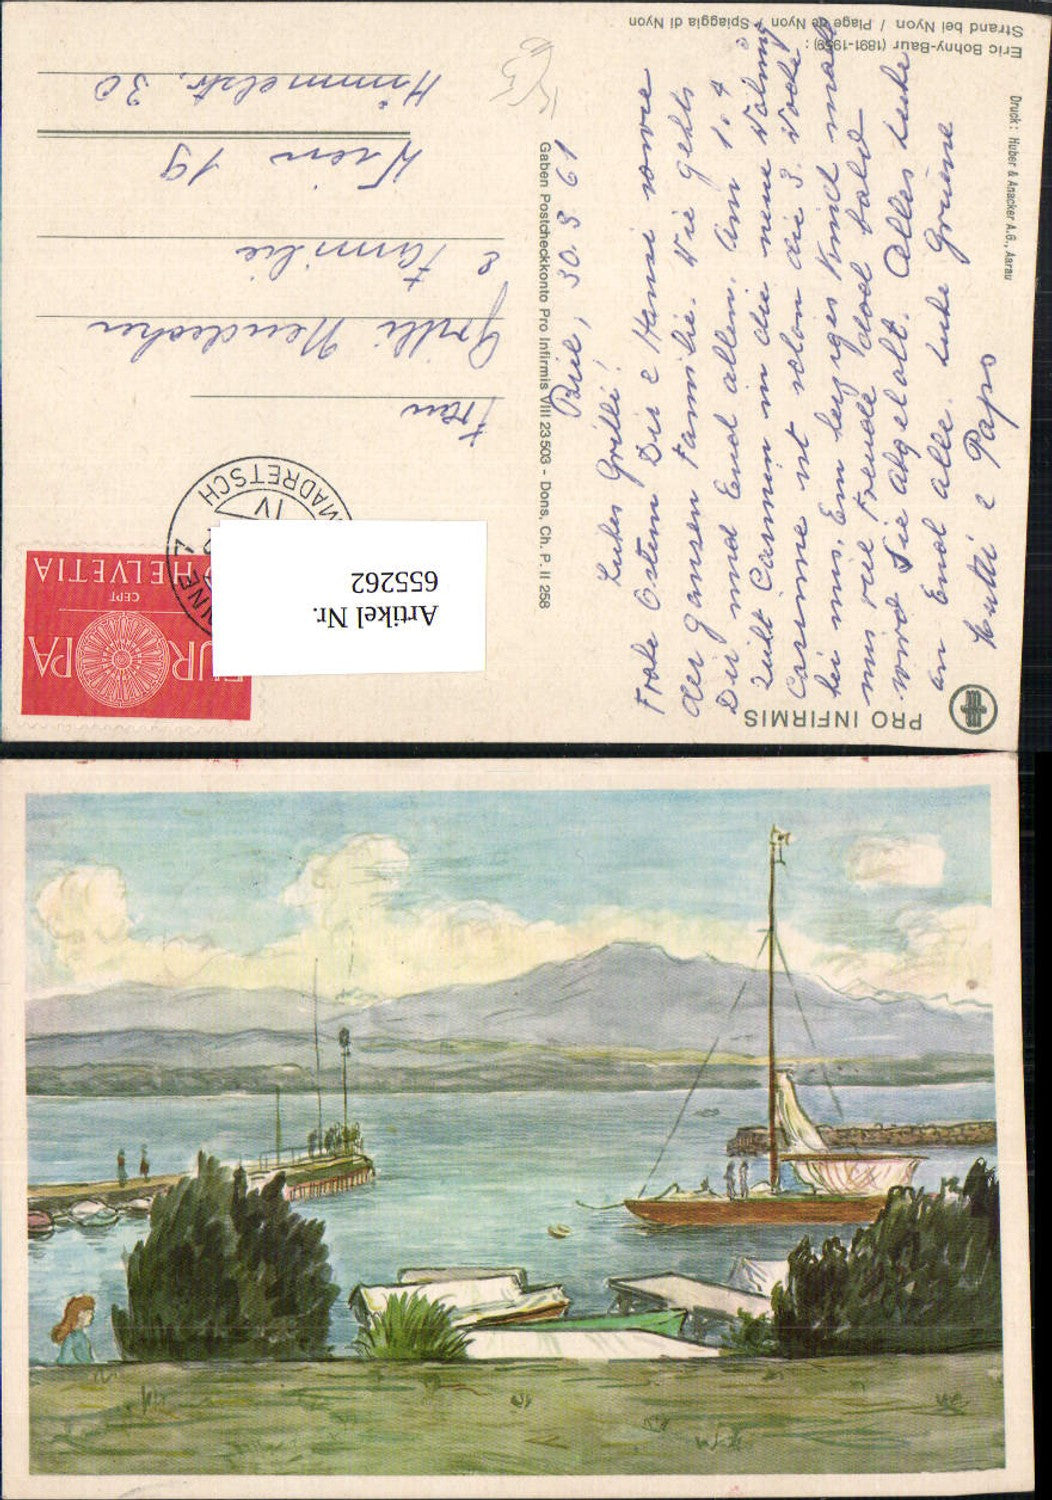 Eric Bohny-Baur (1891-1959):
Strand bei Nyon / Plage de Nyon / Spiaggia di Nyon
Druck: Huber & Anacker A.G., Aarau
PRO INFIRMIS
Gaben Postcheckkonto Pro Infirmis VIII 23503 - Dons, Ch. P. II 258
Biel, 30.3 61
Liebes Gritli!
Frohe Ostern Dir e Hansi sowie
der ganzen Familie. Wie gehts
Dir und Eud allen. Am 1. 4
zieht Carmin in die neue Wohnung
Carinne ist schon die 3. Woche
bei uns. Ein herziges Kind macht
uns viel Freude doch bald
wird Sie abgeholt. Alles Liebe
an Eud alle. Liebe Grüsse
Mutti e Papo
Frau
Gritli Neudecker
e Familie
Wien 19
Himmelstr. 30
MADRETSCH
IV
HELVETIA
CEPT
EUROPA
Artikel Nr.
655262